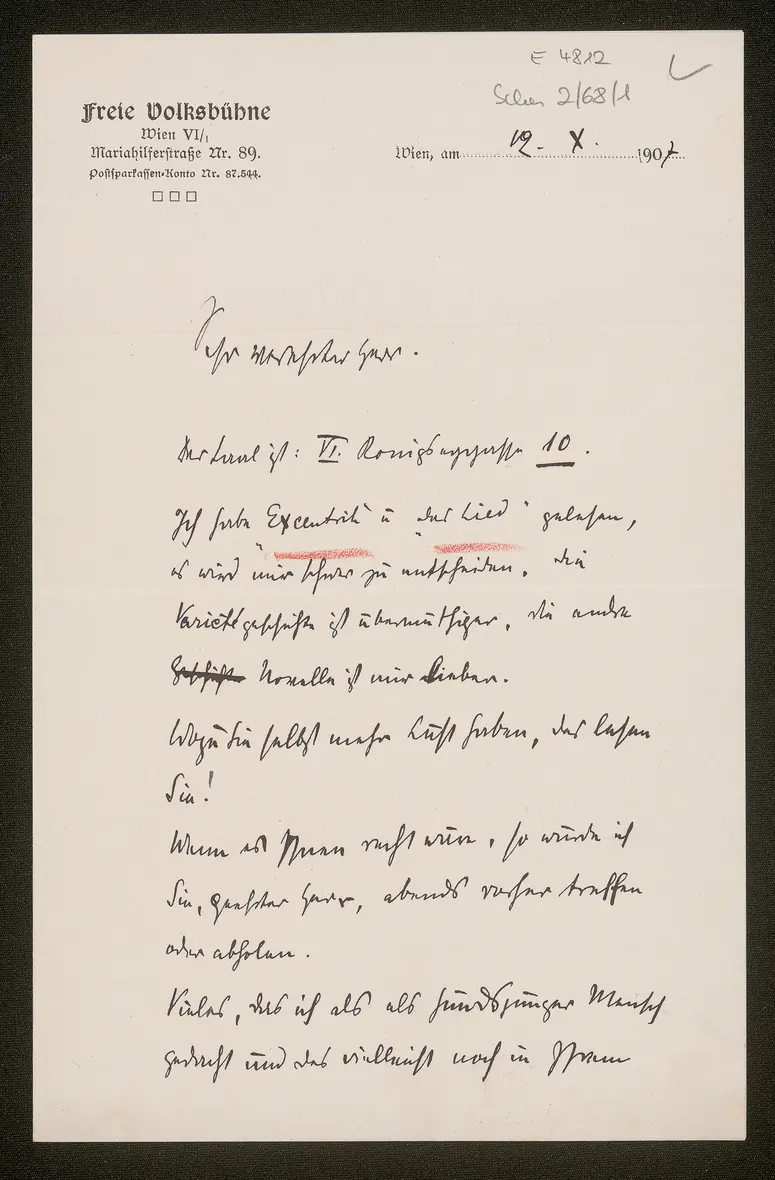 E 4812
2/68/1
Freie Volksbühne
Wien VI/1
Mariahilferstraße Nr. 89.
Postsparkassen-Konto Nr. 87.544.
Wien, am 12. X. 1907
Sehr verehrter Herr.
Der Saal ist: VI. Königseggasse 10.
Ich habe „Excentrik“ u „das Lied“ gelesen,
es wird mir schwer zu entscheiden, die
Varietégeschichte ist übermüthiger, die andre
Novelle ist mir lieber.
Wozu Sie selbst mehr Lust haben, das lesen
Sie!
Wenn es Ihnen recht wäre, so würde ich
Sie, geehrter Herr, abends vorher treffen
oder abholen.
Vieles, das ich als als hundsjunger Mensch
gedacht und das vielleicht noch in Ihrem